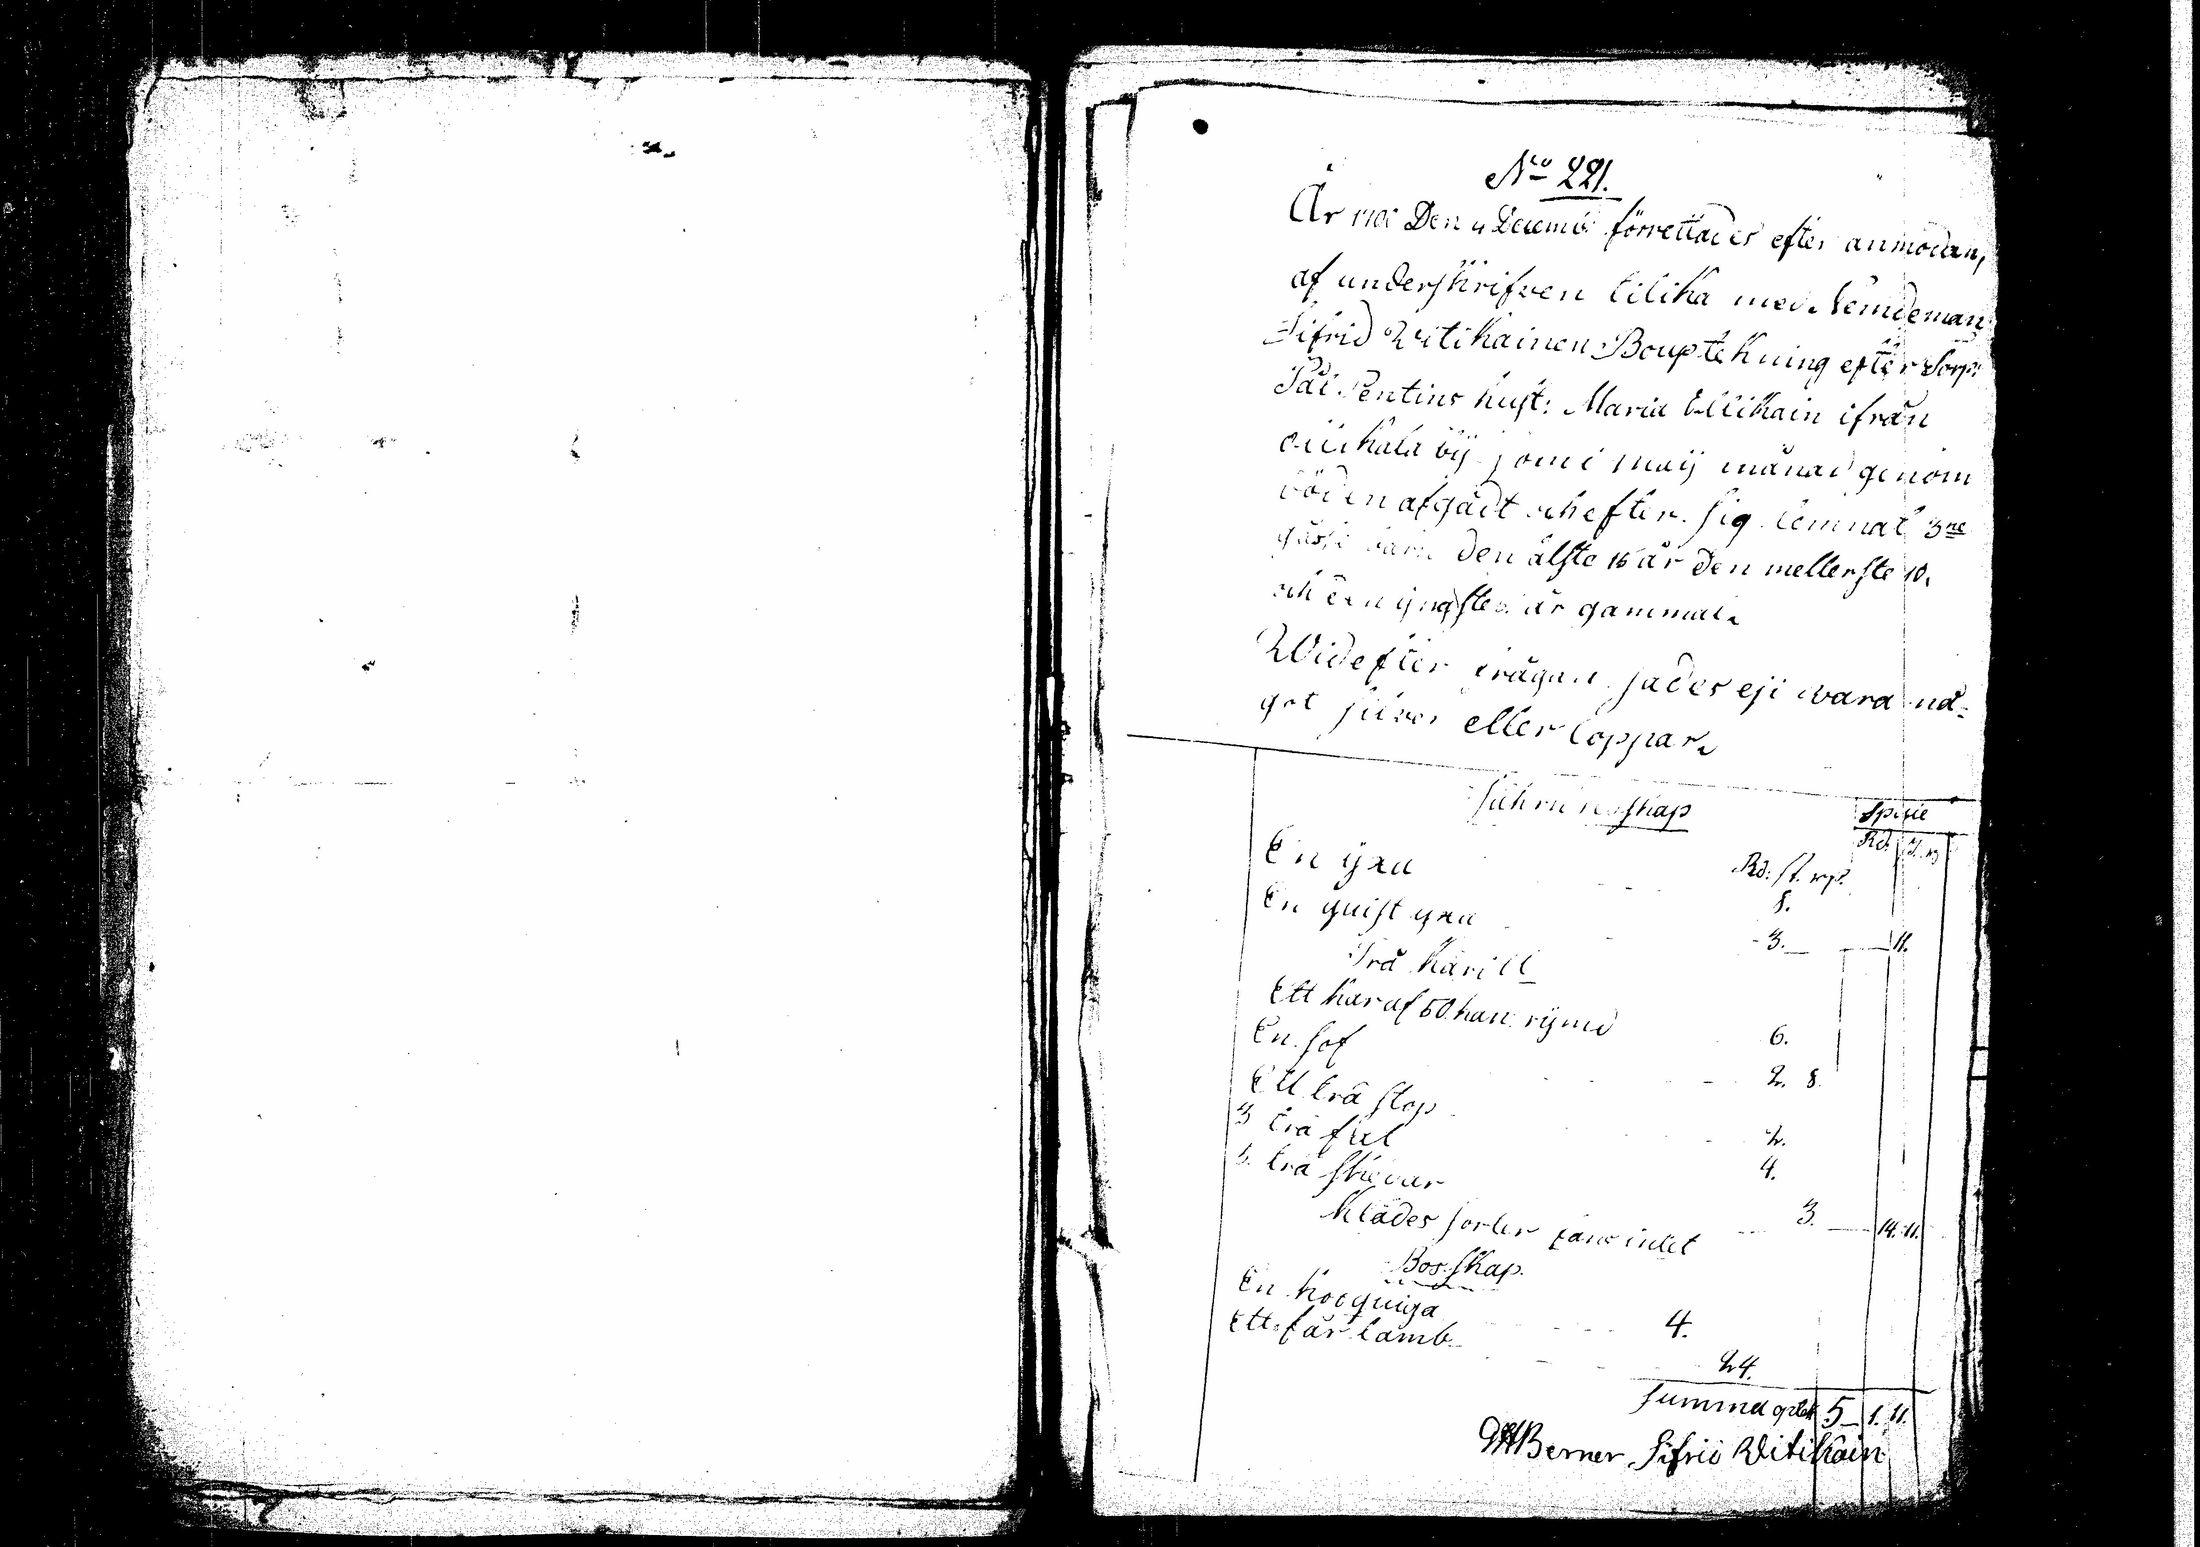 No 221.
År Den 4 Decemb: förrettades efter anmodan,
af underskrifven tilika med Nemdeman
Sifrid Witikainen Bouptekning efter Torp:
Pål Pentins hust: Maria Ellikain ifrån
by som i maij månad genom
döden afgådt och efter sig lemnat 3ne
barn den älste 16 år den mellerste 10.
och den yngste år gammal.
Widefter frågan sades eji wara nå-
got silver eller Coppar.
redskap
Spesie
Rd. s. r
En yxa Rd: s. r.
8.
En quist yxa 3. 11.
Trä Kärill
Ett kar af 50 kan: rymd 6.
En så 2. 8.
Ett trä stop 2.
3 trä fat 4.
5. trä skedar 3. 14. 11.
Klädes sorter fans intet
Bosskap.
En ko quiga 4.
Ett får lamb 24.
Summa 5 1. 11.
Berner Sifrid Witikain